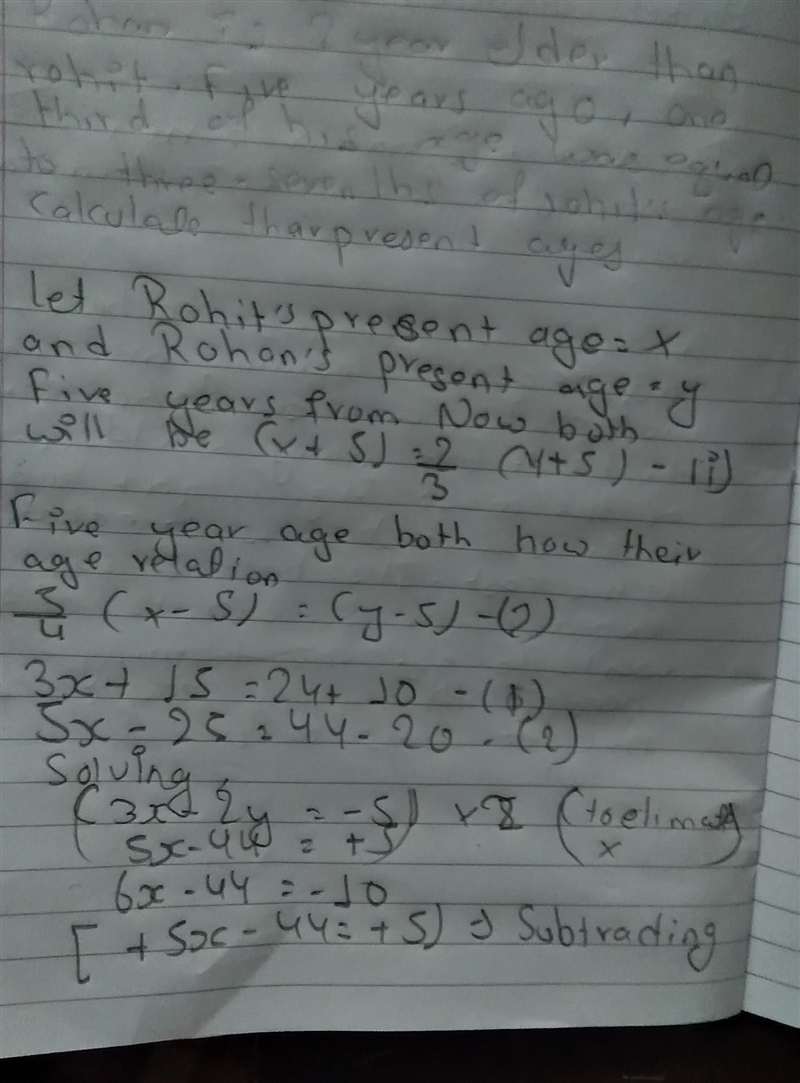 is 2 year older than
rohit. Five years ago, one
third of his age was equal
to three-sevenths of rohit's age
calculate thar present ages
let Rohit's present age = x
and Rohan's present age = y
Five years from Now both
will be (x + 5) = 2/3 (y + 5) - (i)
Five year age both how their
age relation
5/4 (x - 5) = (y - 5) - (2)
3x + 15 = 2y + 10 - (1)
5x - 25 = 4y - 20 - (2)
Solving
(3x - 2y = -5) × 2 (to elimate
5x - 4y = +5) x)
6x - 4y = -10
[ + 5x - 4y = +5) ⇒ Subtrading